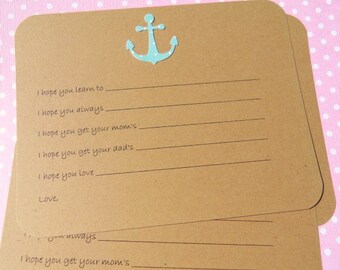 I hope you learn to
I hope you always
I hope you get your mom's
I hope you get your dad's
I hope you love
Love,
I hope you always
I hope you get your mom's